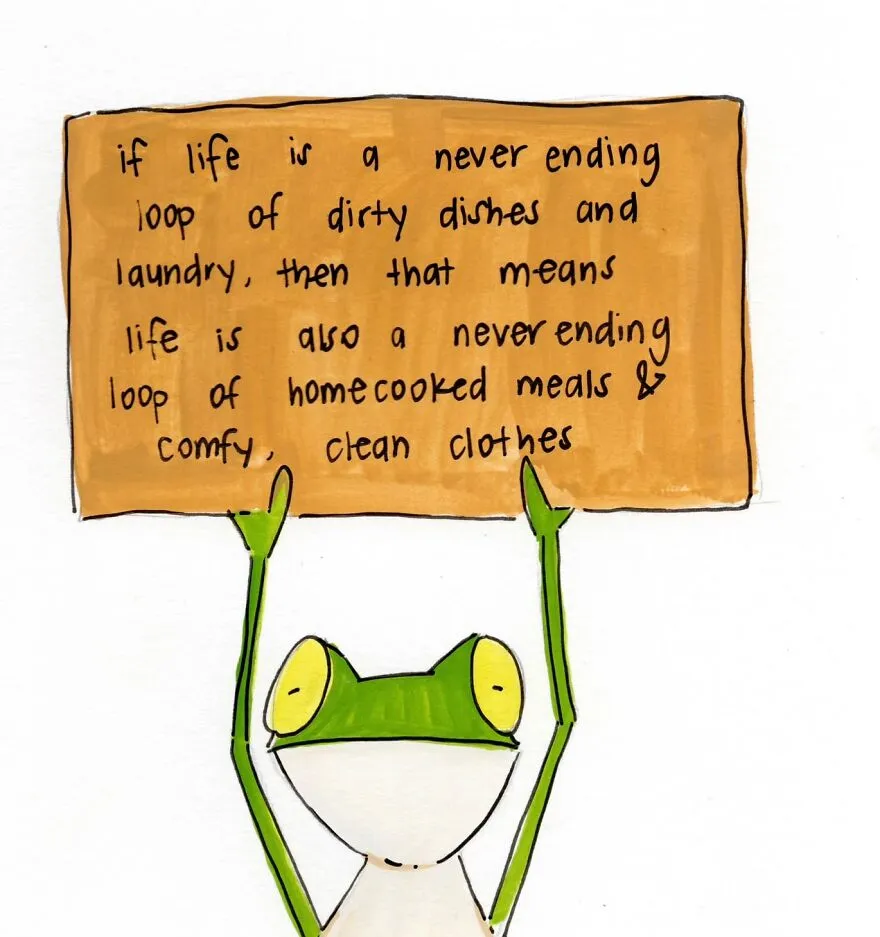 if life is a never ending
loop of dirty dishes and
laundry, then that means
life is also a never ending
loop of homecooked meals &
comfy, clean clothes